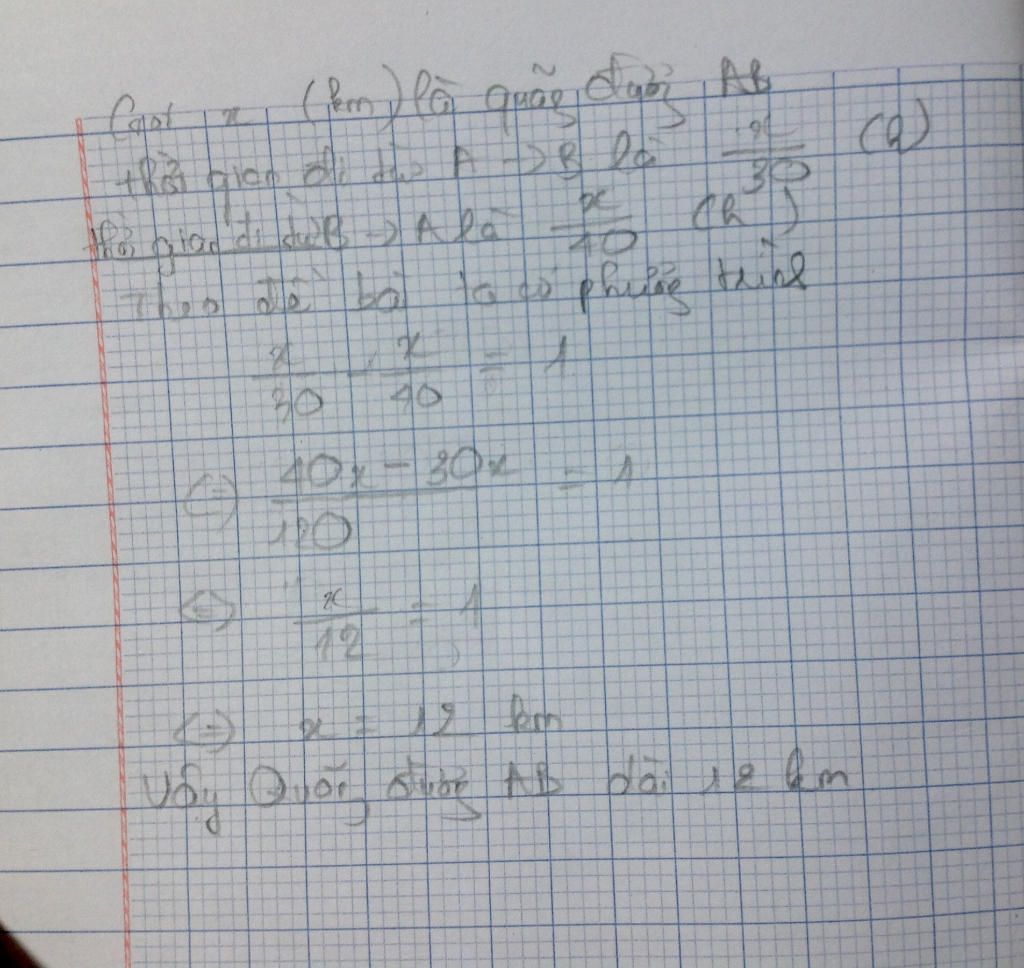 Gọi x (km) là quãng đường AB
thời gian đi từ A -> B là x/30 (h)
thời gian đi từ B -> A là x/40 (h)
Theo đề bài ta có phương trình
x/30 - x/40 = 1
(=) (40x - 30x)/120 = 1
<=> x/12 = 1
<=> x = 12 km
Vậy Quãng đường AB dài 12 km